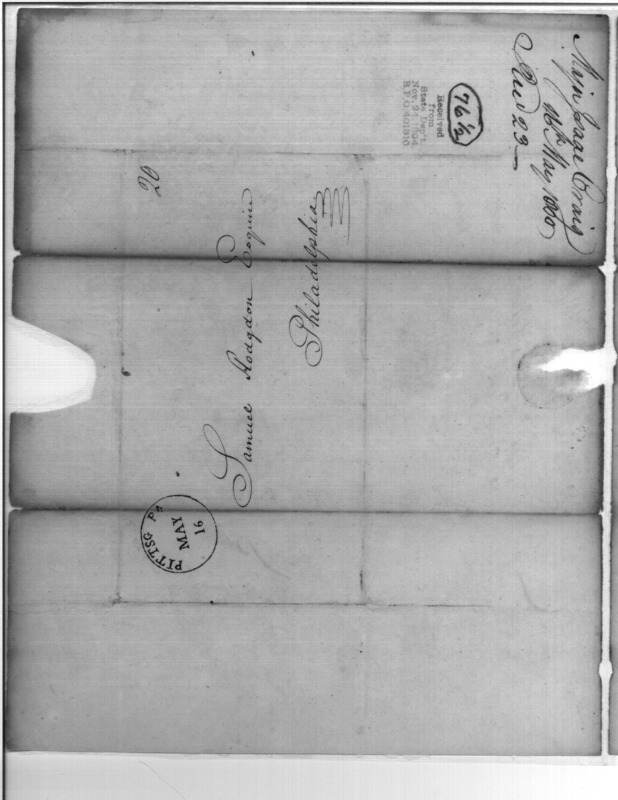 Majr Isaac Craig
16th May 1800
Recd 23
76½
Received
from
State Dep't
Nov. 24 1894
R.P.O. 401810
20
Samuel Hodgdon Esquire
Philadelphia
PITTSG Pa
MAY
16